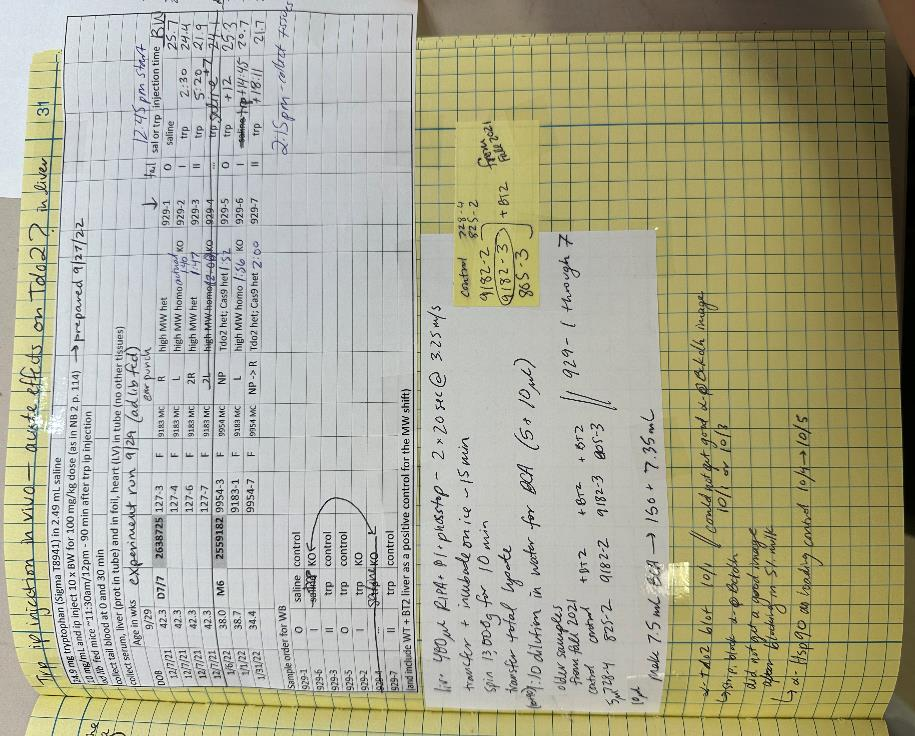 Trp ip injection in vivo - acute effects on Tdo2? in liver 31
24.9 mg tryptophan (Sigma T8941) in 2.49 mL saline
10 mg/mL and ip inject 10 x BW for 100 mg/kg dose (as in NB 2 p. 114) → prepared 9/27/22
ad lib fed mice ~11:30am/12pm - 90 min after trp ip injection
collect tail blood at 0 and 30 min
Collect serum, liver (prot in tube) and in foil, heart (LV) in tube (no other tissues)
Age in wks experiment run 9/29 (ad lib fed) 12:45pm start
DOB 9/29 ear punch tail sal or trp injection time BW
12/7/21 42.3 D7/7 2638725 127-3 F 9183 MC R high MW het 929-1 O saline 25.7
12/7/21 42.3 127-4 F 9183 MC L high MW homo KO 929-2 I trp 2:30 24.4
12/7/21 42.3 127-6 F 9183 MC 2R high MW het 1:47 929-3 II trp 5:20 21.9
12/7/21 42.3 127-7 F 9183 MC 2L high MW homo KO 929-4 ... trp saline +7 24.1
1/6/22 38.0 M6 2559182 9954-3 F 9954 MC NP Tdo2 het; Cas9 het 1:52 929-5 O trp +12 25.3
1/1/22 38.7 9183-1 F 9183 MC L high MW homo 1:56 KO 929-6 I saline trp +14:45 20.7
1/31/22 34.4 9954-7 F 9954 MC NP -> R Tdo2 het; Cas9 het 2:00 929-7 II trp +18:11 21.7
2:15pm - collect tissues
Sample order for WB
929-1 O saline control
929-6 I saline KO
929-3 II trp control
929-5 O trp control
929-2 I trp KO
929-4 ... saline KO
929-7 II trp control
(and include WT + BT2 liver as a positive control for the MW shift)
liv: 400 µL RIPA + PI + phosstop - 2 x 20 sec @ 3.25 m/s
transfer + incubate on ice ~15 min
spin 13,000g for 10 min
transfer total lysate
1:10 dilution in water for BCA (5+ µL)
older samples
from fall 2021
control control +BT2 +BT2 +BT2
728-4 825-2 9182-2 9182-3 865-3 // 929-1 through 7
make 7.5 mL BCA → 150 + 7.35 mL
control 728-4
825-2
9182-2
9182-3 + BT2
865-3
from fall 2021
α-tdo2 blot 10/1 // could not get good α-pBckdh image
10/1 or 10/3
↳ strip, block, α-pBckdh
did not get a good image
upon blocking in 5% milk
↳ α-Hsp90 as loading control 10/4 → 10/5